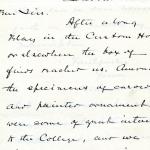 Dear Sirs.
After a long
delay in the Custom Ho
or elsewhere the box of
finds reached us. Among
the specimens of carved
and painted ornament
were some of great intere
to the College, and we